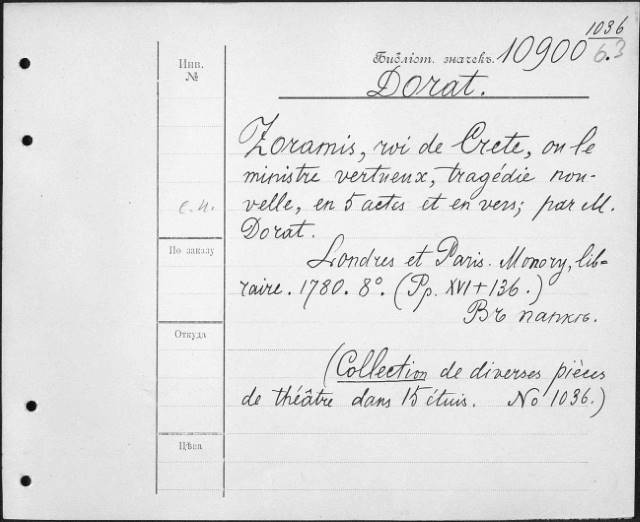 1036
Инв.
№
Библіот. значекъ. 10900 6.3
Dorat.
Zoramis, roi de Crete, ou le
ministre vertueux, tragédie nou-
velle, en 5 actes et en vers; par M.
Dorat.
По заказу
Londres et Paris. Monory, lib-
raire. 1780. 8º. (Pp. XVI + 136.)
Въ папкѣ.
Откуда
(Collection de diverses pièces
de théâtre dans 15 étuis. No 1036.)
Цѣна